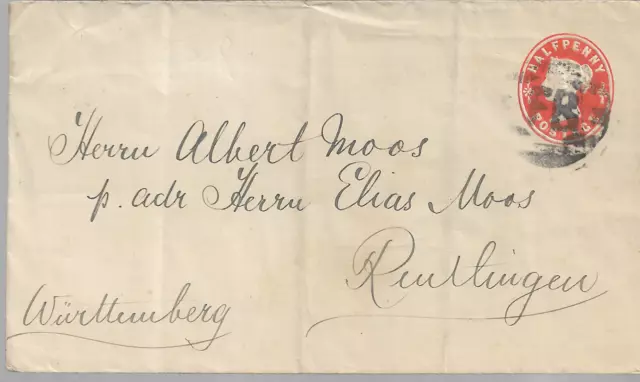 HALFPENNY
POSTAGE
Herrn Albert Moos
p. adr Herrn Elias Moos
Reutlingen
Württemberg